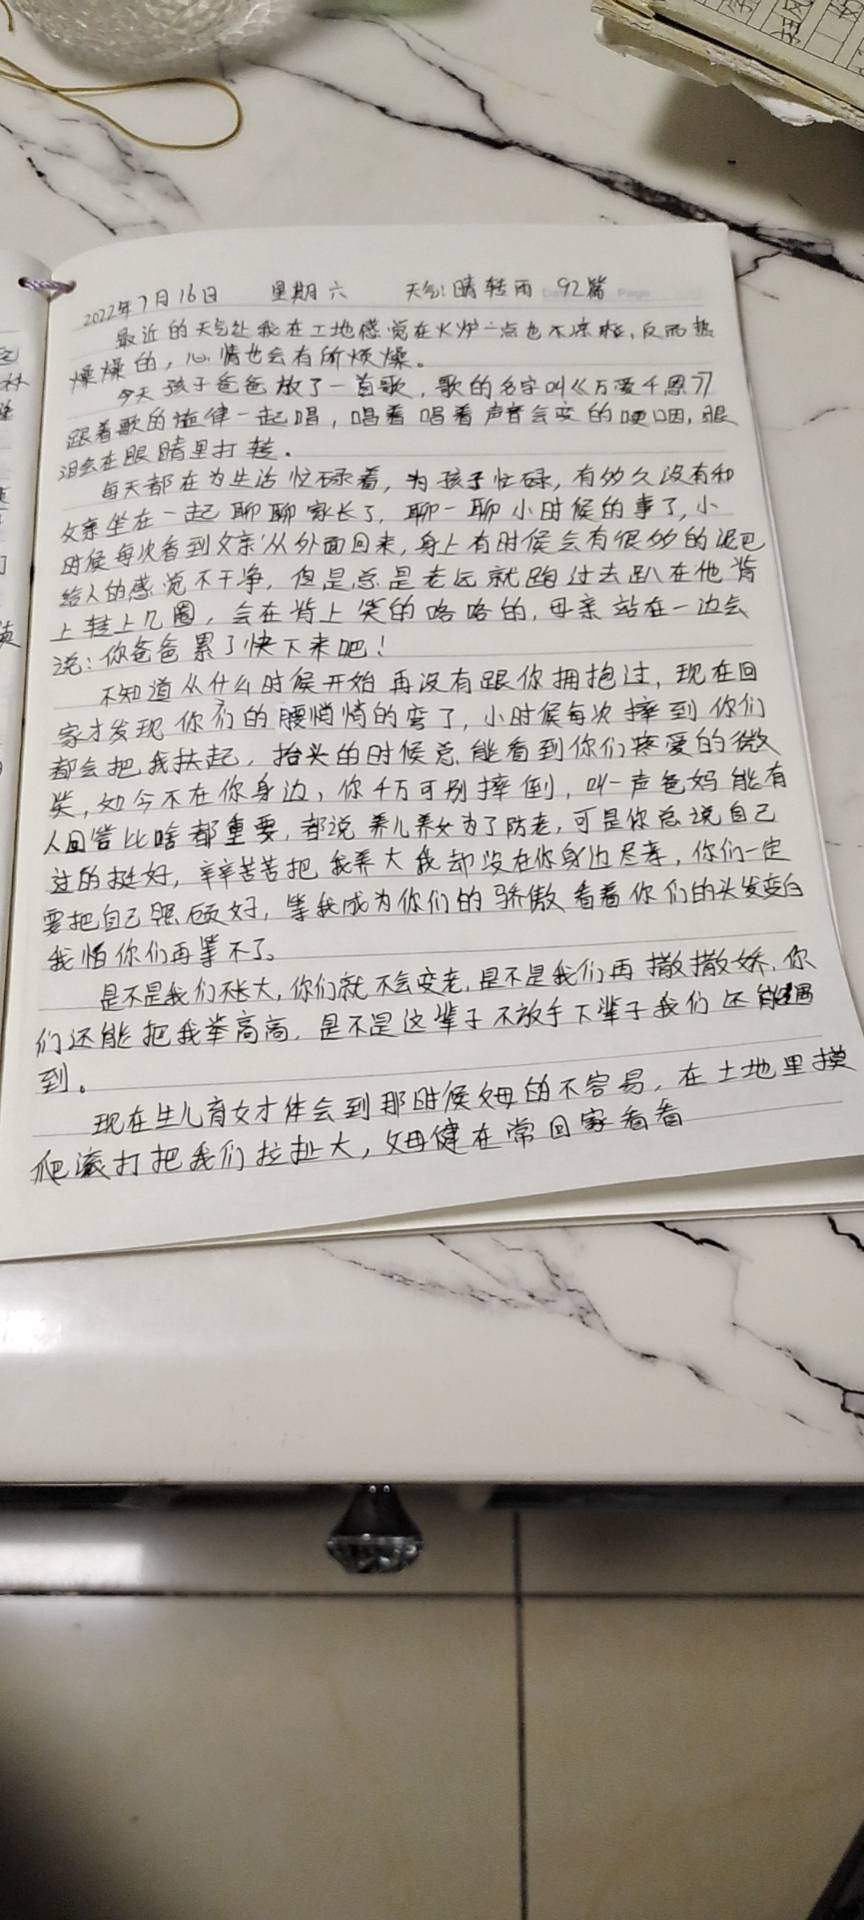 2022年7月16日 星期六 天气:晴转雨 92篇
最近的天气让我在工地感觉在火炉一点也不凉快,反而热
燥燥的,心情也会有所烦燥。
今天孩子爸爸放了一首歌,歌的名字叫《万爱千恩》
跟着歌的旋律一起唱,唱着唱着声音会变的哽咽,眼
泪会在眼睛里打转。
每天都在为生活忙碌着,为孩子忙碌,有多久没有和
父亲坐在一起聊聊家长了,聊一聊小时候的事了,小
时候每次看到父亲从外面回来,身上有时候会有很多的泥巴
给人的感觉不干净,但是总是老远就跑过去趴在他背
上转上几圈,会在背上笑的咯咯的,母亲站在一边会
说:你爸爸累了快下来吧!
不知道从什么时候开始再没有跟你拥抱过,现在回
家才发现你们的腰悄悄的弯了,小时候每次摔到你们
都会把我扶起,抬头的时候总能看到你们疼爱的微
笑,如今不在你身边,你千万可别摔倒,叫一声爸妈能有
人回答比啥都重要,都说养儿养女为了防老,可是你总说自己
过的挺好,辛辛苦苦把我养大我却没在你身边尽孝,你们一定
要把自己照顾好,等我成为你们的骄傲看着你们的头发变白
我怕你们再等不了。
是不是我们不长大,你们就不会变老,是不是我们再撒撒娇,你
们还能把我举高高,是不是这辈子不放手下辈子我们还能遇
到。
现在生儿育女才体会到那时候父母的不容易,在土地里摸
爬滚打把我们拉扯大,父母健在常回家看看